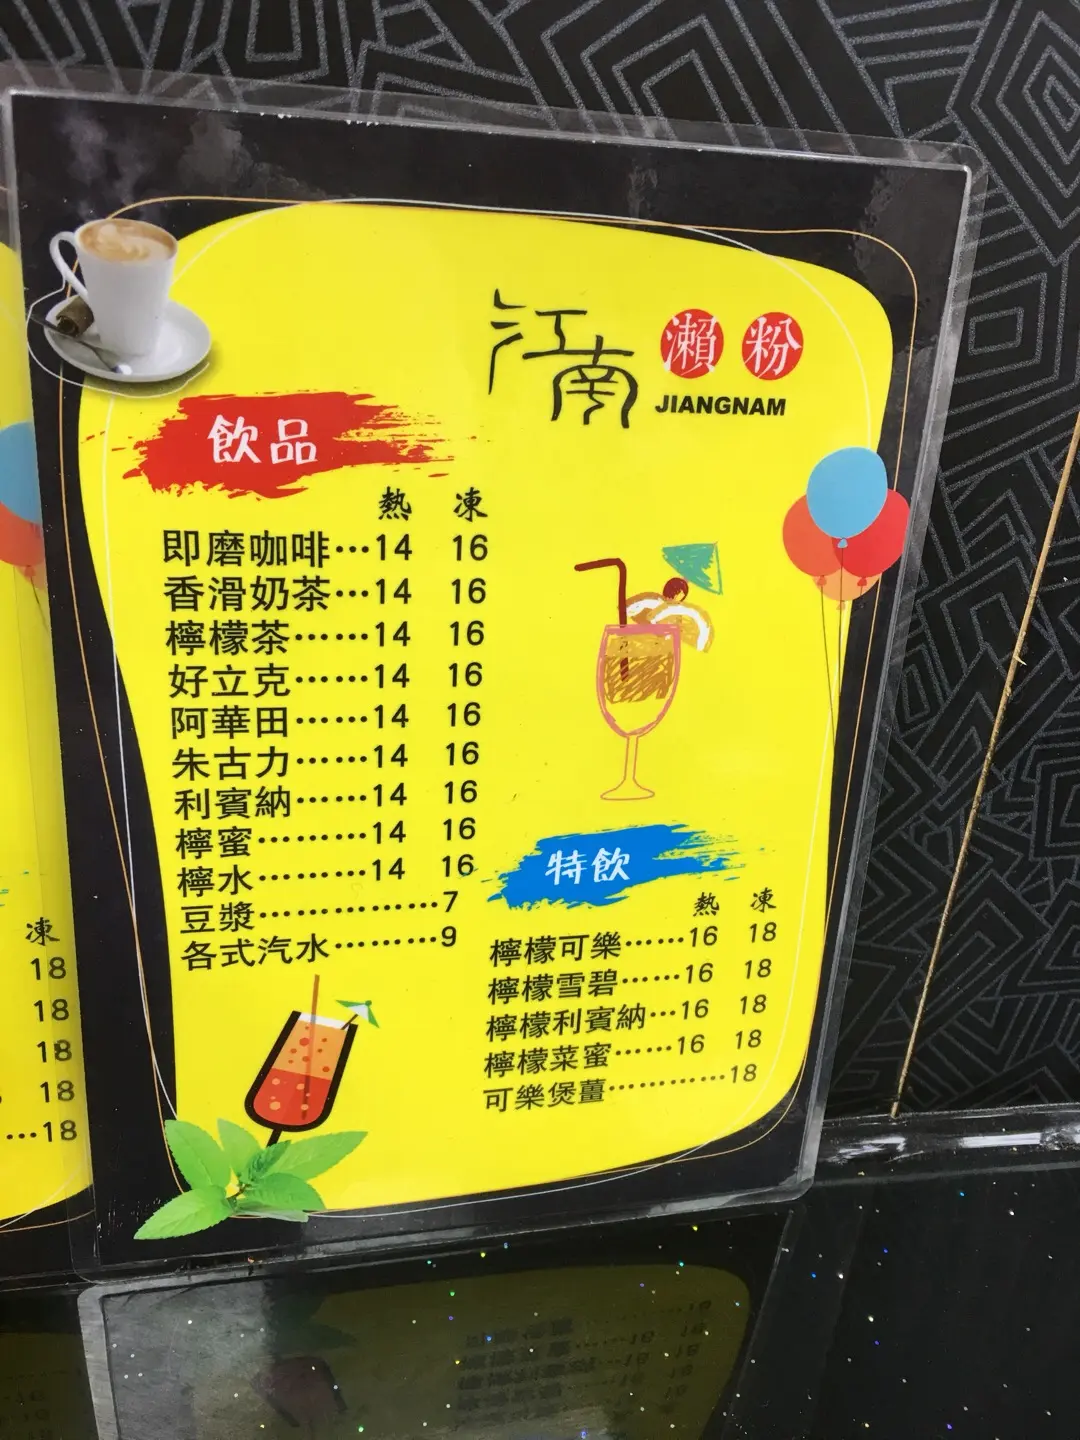 江南 瀨粉
JIANGNAM
飲品
熱 凍
即磨咖啡…14 16
香滑奶茶…14 16
檸檬茶……14 16
好立克……14 16
阿華田……14 16
朱古力……14 16
利賓納……14 16
檸蜜………14 16
檸水………14 16
豆漿……………7
各式汽水………9
特飲
熱 凍
檸檬可樂……16 18
檸檬雪碧……16 18
檸檬利賓納…16 18
檸檬菜蜜……16 18
可樂煲薑…………18
凍
18
18
18
18
…18